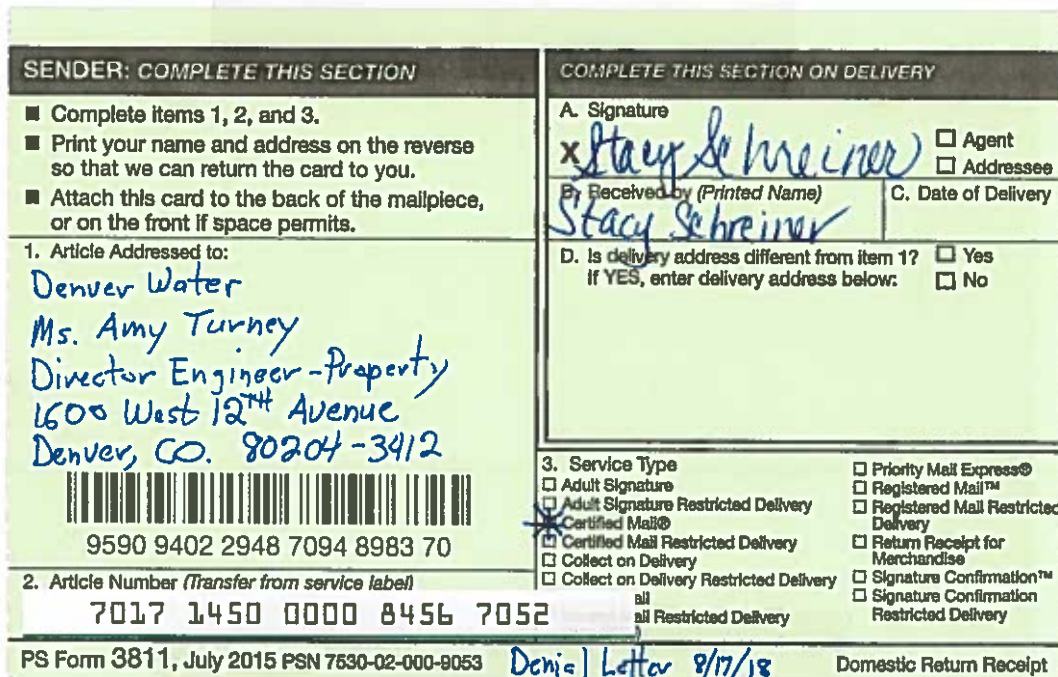 SENDER: COMPLETE THIS SECTION
■ Complete items 1, 2, and 3.
■ Print your name and address on the reverse
so that we can return the card to you.
■ Attach this card to the back of the mailpiece,
or on the front if space permits.
1. Article Addressed to:
Denver Water
Ms. Amy Turney
Director Engineer-Property
1600 West 12TH Avenue
Denver, CO. 80204-3412
9590 9402 2948 7094 8983 70
2. Article Number (Transfer from service label)
7017 1450 0000 8456 7052
COMPLETE THIS SECTION ON DELIVERY
A. Signature
X Stacy Schreiner
☐ Agent
☐ Addressee
B. Received by (Printed Name)
Stacy Schreiner
C. Date of Delivery
D. Is delivery address different from item 1? ☐ Yes
If YES, enter delivery address below: ☐ No
3. Service Type
☐ Adult Signature
☐ Adult Signature Restricted Delivery
☐ Certified Mail®
☐ Certified Mail Restricted Delivery
☐ Collect on Delivery
☐ Collect on Delivery Restricted Delivery
ail
ail Restricted Delivery
☐ Priority Mail Express®
☐ Registered Mail™
☐ Registered Mail Restricted
Delivery
☐ Return Receipt for
Merchandise
☐ Signature Confirmation™
☐ Signature Confirmation
Restricted Delivery
PS Form 3811, July 2015 PSN 7530-02-000-9053 Denial Letter 8/17/18 Domestic Return Receipt